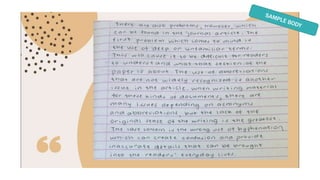 SAMPLE BODY
There are also problems, however, which
can be found in the journal article. The
first problem which comes to mind is
the use of deep or unfamiliar terms.
This will cause it to be difficult for readers
to understand what that section of the
paper is about. The use of abbreviations
that are not widely recognized is another
issue in the article. When writing material
for these kinds of documents, there are
many issues depending on acronyms
and abbreviations, but the lack of the
original sense of the writing is the greatest.
The last concern is the wrong use of hyphenation,
which can create confusion and provide
inaccurate details that can be brought
into the readers' everyday lives.